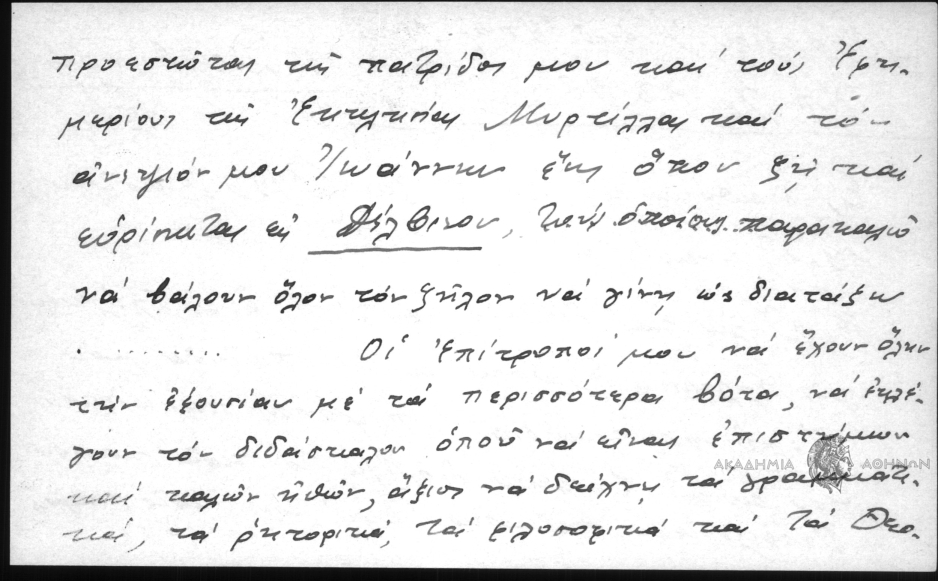 προεστῶτας τῆς πατρίδος μου καί τούς Ἐφη-
μερίους τῆς Ἐκκλησίας Μυρτίλλας καί τόν
ἀνεψιόν μου Ἰωάννην ἕως ὅπου ζῇ καί
εὑρίσκεται εἰς Δέλβινον, τούς ὁποίους παρακαλῶ
νά βάλουν ὅλον τόν ζῆλον νά γίνῃ ὡς διατάξω
.......... Οἱ ἐπίτροποί μου νά ἔχουν ὅλην
τήν ἐξουσίαν μέ τά περισσότερα βότα, νά ἐκλέ-
γουν τόν διδάσκαλον ὁποῦ νά εἶναι ἐπιστήμων
καί καλῶν ἠθῶν, ἄξιος νά δείχνῃ τά γραμματι-
κά, τά ῥητορικά, τά φιλοσοφικά καί τά Θεο-
ΑΚΑΔΗΜΙΑ ΑΘΗΝΩΝ